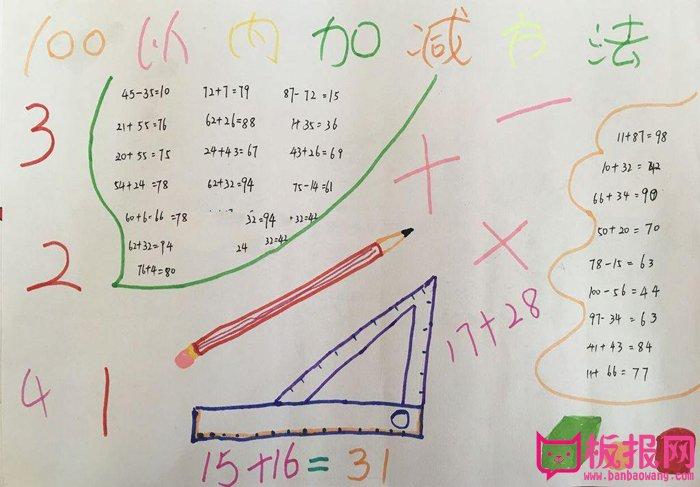 100以内加减方法
3
45-35=10 72+7=79 87-72=15
21+55=76 62+26=88 1+35=36
20+55=75 24+43=67 43+26=69
54+24=78 62+32=94 75-14=61
60+6=66=78 32=94 +32=42
62+32=94 24 32=42
76+4=80
+
-
×
11+87=98
10+32=42
66+34=90
50+20=70
78-15=63
100-56=44
97-34=63
41+43=84
11+66=77
2
17+28
4
1
15+16=31
板报网
www.banbaowang.com